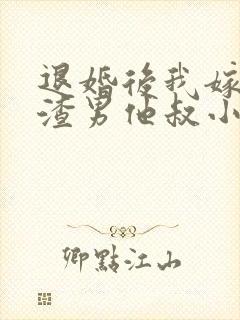 退婚後我嫁
渣男他叔小
卿點江山